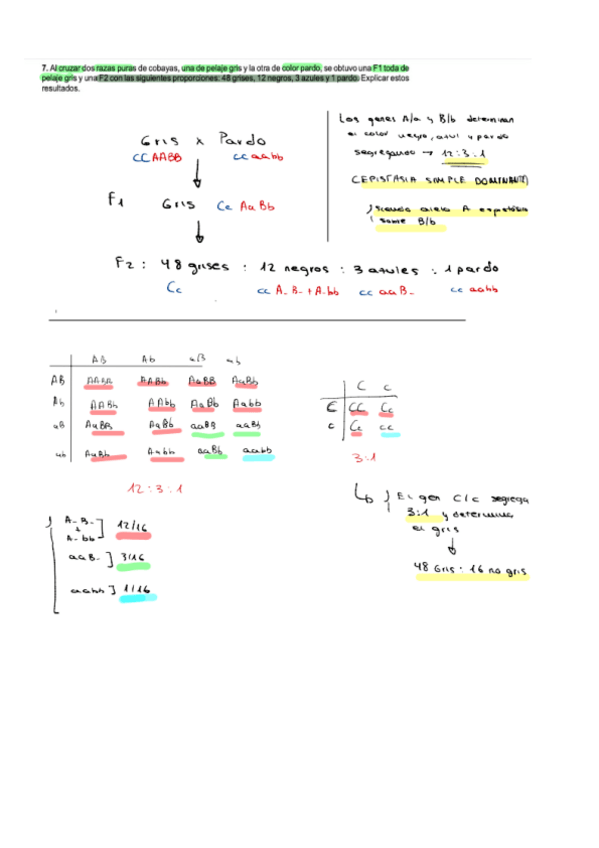 7. Al cruzar dos razas puras de cobayas, una de pelaje gris y la otra de color pardo, se obtuvo una F1 toda de
pelaje gris y una F2 con las siguientes proporciones: 48 grises, 12 negros, 3 azules y 1 pardo. Explicar estos
resultados.
Gris x Pardo
CCAABB ccaabb
F1 Gris Cc AaBb
F2 : 48 grises : 12 negros : 3 azules : 1 pardo
Cc cc A_B_ + A_bb cc aaB_ cc aabb
Los genes A/a y B/b determinan
el color negro, azul y pardo
segregando → 12:3:1
(EPISTASIA SIMPLE DOMINANTE)
siendo alelo A epistásico
sobre B/b
AB Ab aB ab
AB AABB AABb AaBB AaBb
Ab AABb AAbb AaBb Aabb
aB AaBB AaBb aaBB aaBb
ab AaBb Aabb aaBb aabb
12 : 3 : 1
A_B_
+
A_bb ] 12/16
aaB_ ] 3/16
aabb ] 1/16
C c
C CC Cc
c Cc cc
3:1
El gen C/c segrega
3:1 y determina
el gris
48 Gris : 16 no gris